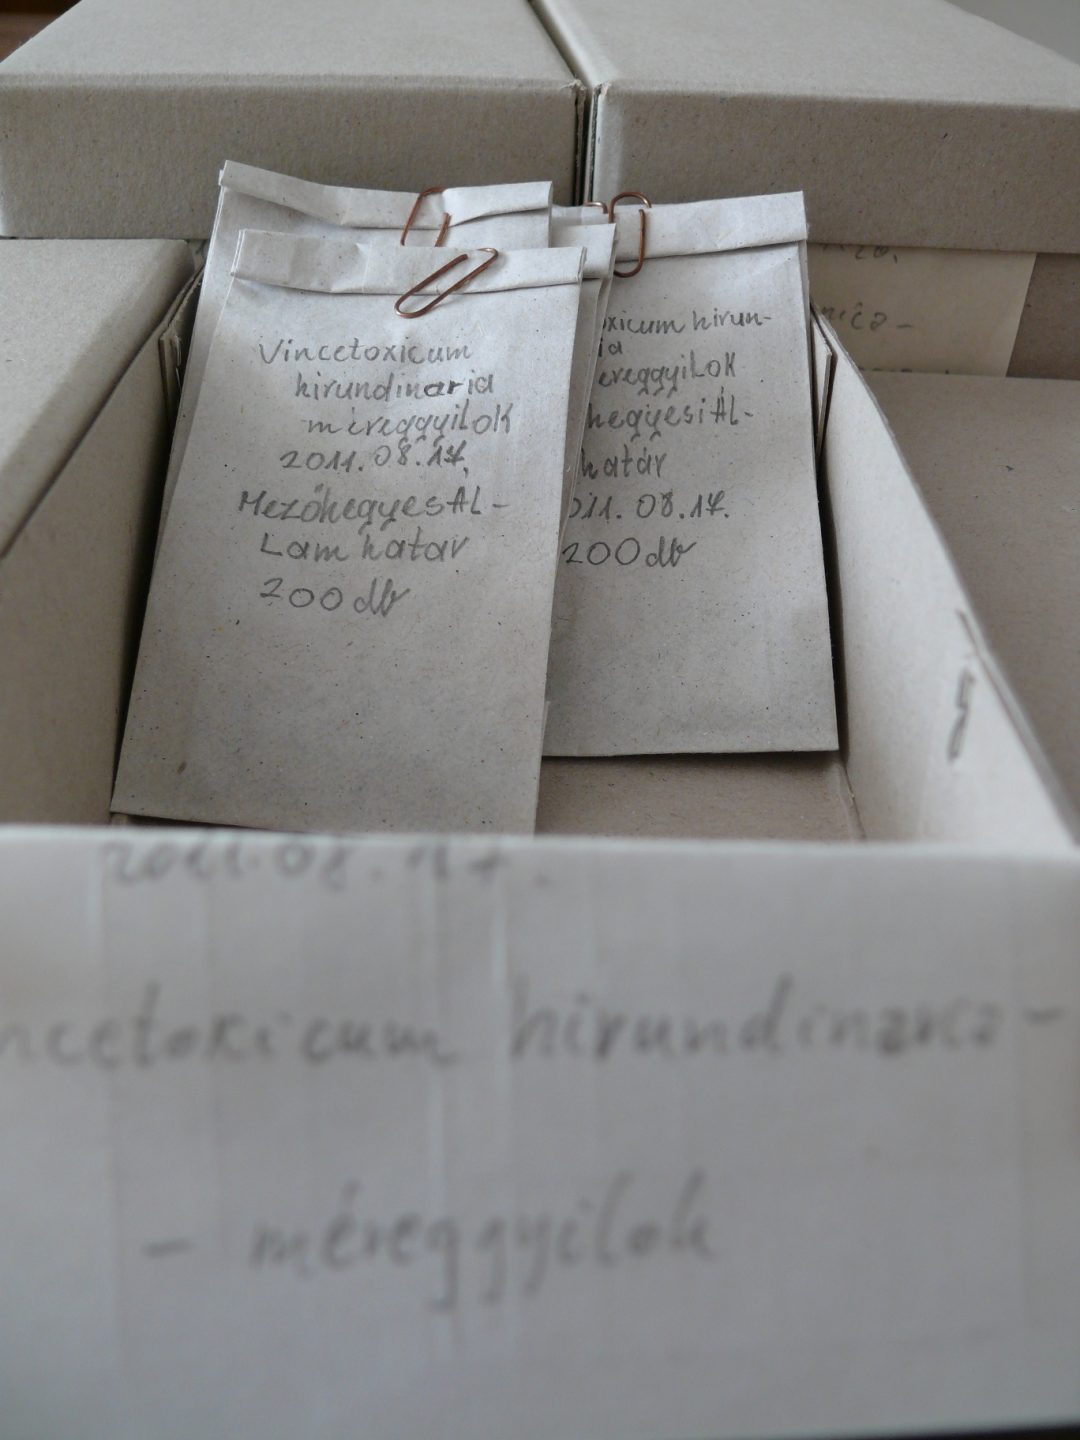 Vincetoxicum
hirundinaria
méreggyilok
2011.08.17.
MezőhegyesÁl-
Lam határ
200 db
oxicum hirun-
ia
ereggyilok
hegyesiÁl-
határ
011. 08.17.
200 db
2011.08.17.
ncetoxicum hirundinaria-
- méreggyilok